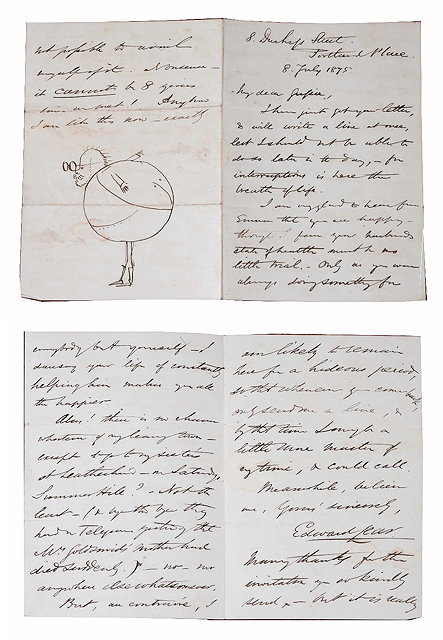 8. Duchess Street
Portland Place.
8. July 1875.
My dear Gussie,
I have just got your letter,
& will write a line at once,
lest I should not be able to
do so later in the day, – for
interruptions is here the
breath of life.
I am very glad to hear from
Emma that you are happy –
though I fear your husband's
state of health must be no
little trial. – Only as you were
always doing something for
anybody but yourself – I
daresay your life of constantly
helping him makes you all
the happier.
Alas! there is no chance
whatever of my leaving town –
except to go to my sister
at Leatherhead – on Saturday,
Summer Hill? – Not the
least – (& by the bye they
had a Telegram yesterday that
Mrs Goldsmid's mother had
died suddenly.) – no – no
anywhere else whatsoever.
But, au contraire, I
am likely to remain
here for a hideous period,
so that whenever you come
send me a line, &
by that time I may be a
little more master of
my time, & could call.
Meanwhile, believe
me, Yours sincerely,
Edward Lear
Many thanks for the
invitation you so kindly
send – but it is really
not possible to avail
myself of it. Nonsense –
it cannot be 8 years
since we met! Anyhow
I am like this now – exactly